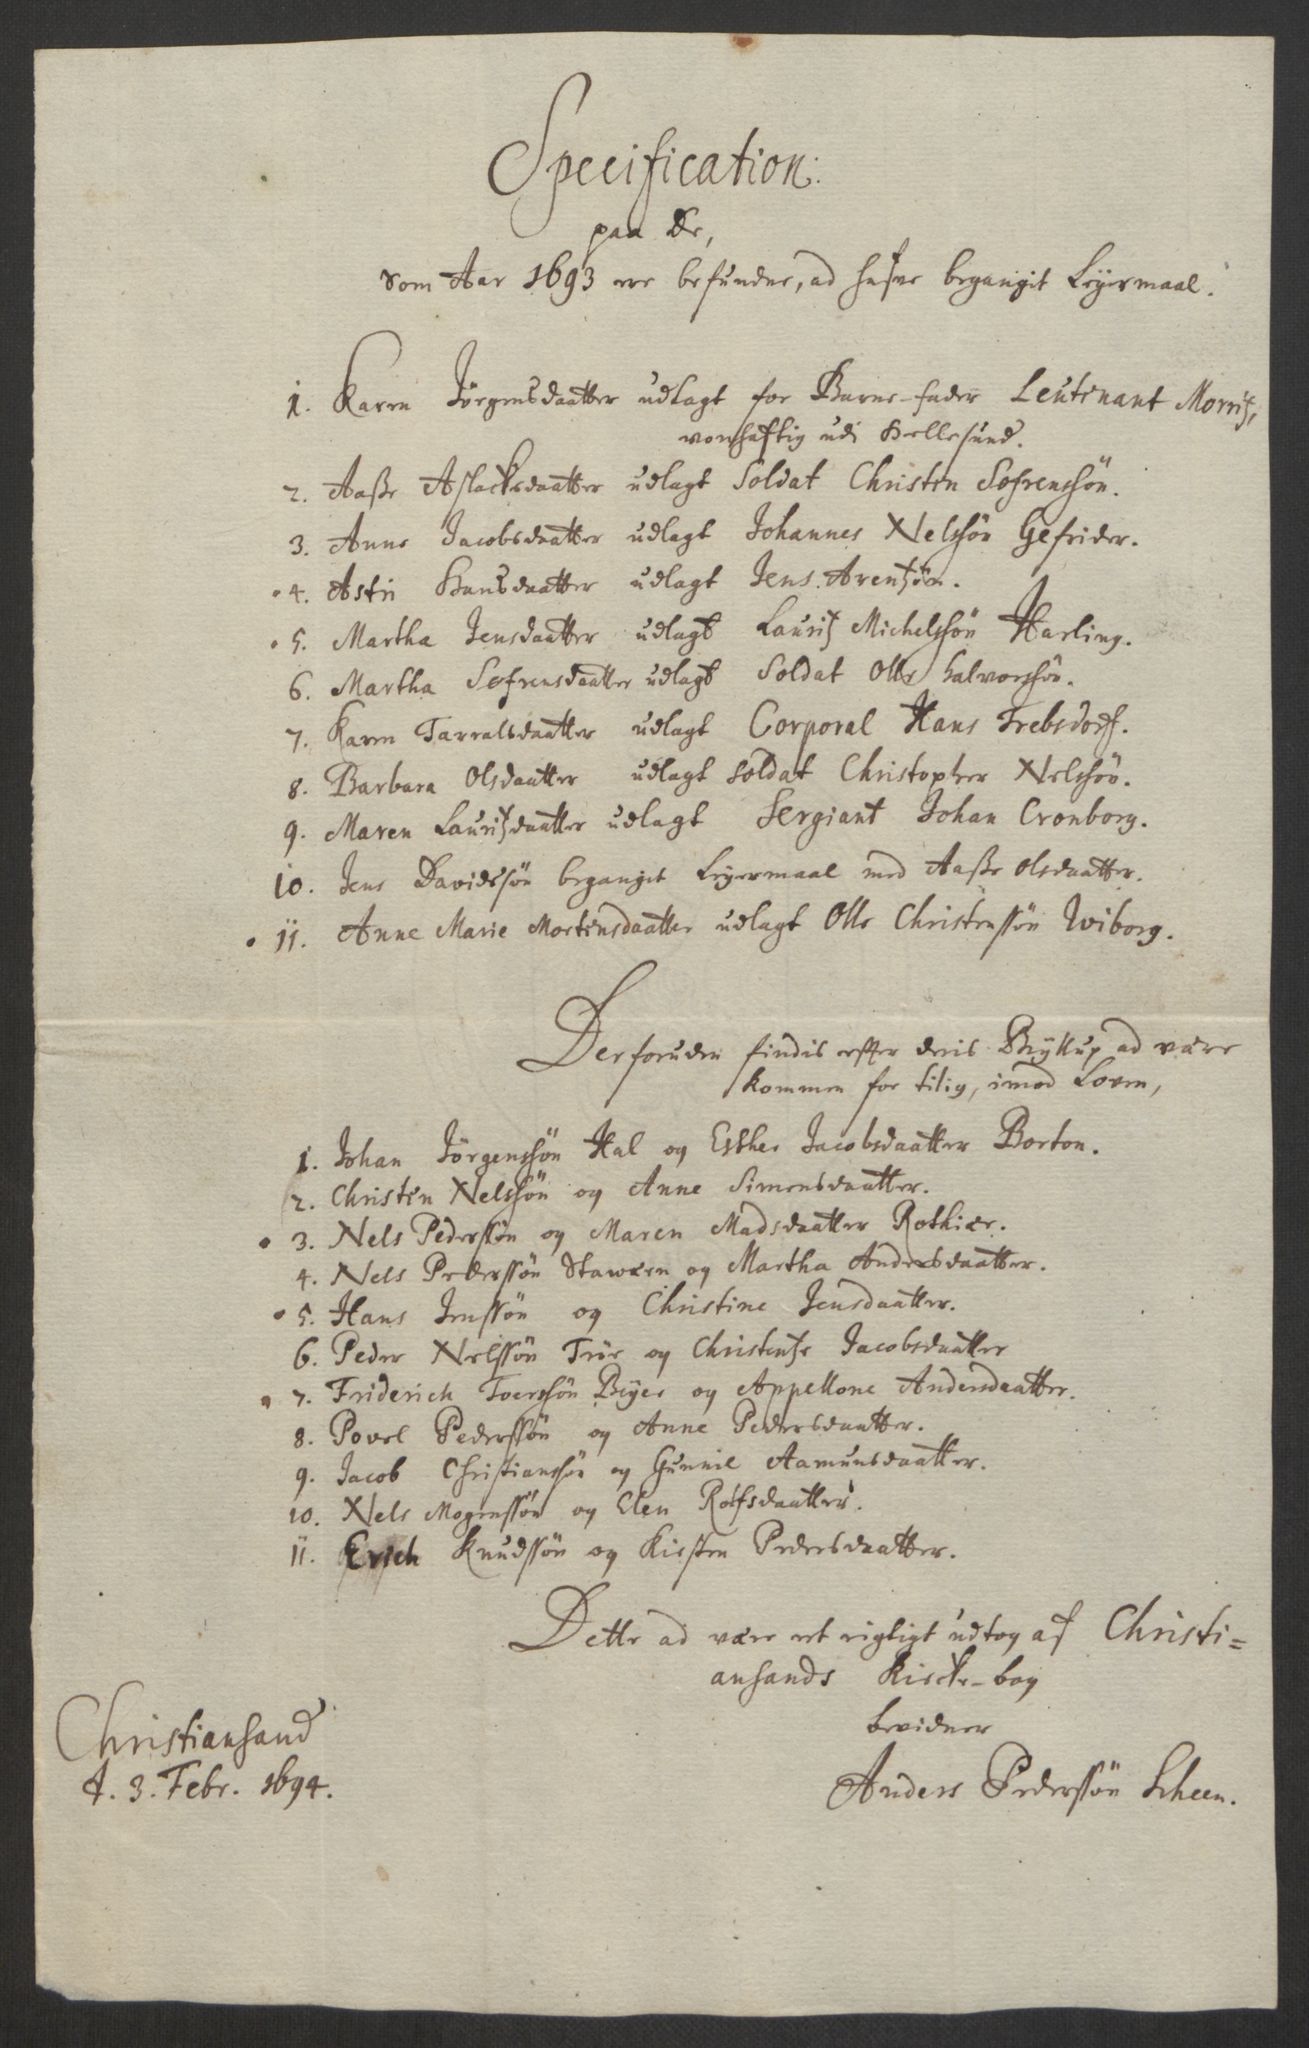 Specification:
paa De,
Som Aar 1693 ere befundne, ad hafve begangit Leyermaal.
1. Karen Jörgensdaatter udlagt for Barne-fader Leutenant Moritz,
vonhaftig udi Hellesund.
2. Aaße Aslacksdaatter udlagt Soldat Christen Sofrenssön.
3. Anne Jacobsdaatter udlagt Johannes Nelssön Gefrider.
4. Astri Hansdaatter udlagt Jens Arentzön.
5. Martha Jensdaatter udlagt Lauritz Michelssön Harling.
6. Martha Sofrensdaatter udlagt Soldat Olle Halvorssön.
7. Karen Tarralsdaatter udlagt Corporal Hans Trebsdorf.
8. Barbara Olsdaatter udlagt Soldat Christopher Nelssön.
9. Maren Lauritzdaatter udlagt Sergiant Johan Cronborg.
10. Jens Davidssön begangit Leyermaal med Aaße Olsdaatter.
11. Anne Marie Mortensdaatter udlagt Olle Christenssön Wiborg.
Der foruden findis efter deris Bryllup ad være
kommen for tilig, imod Loven,
1. Johan Jörgenssön Hal og Esther Jacobsdaatter Borton.
2. Christen Nelssön og Anne Simensdaatter.
3. Nels Pederssön og Maren Madsdaatter Rothiær.
4. Nels Pederssön Stawæren og Martha Andersdaatter.
5. Hans Jenssön og Christine Jensdaatter.
6. Peder Nelssön Tröe og Christentze Jacobsdaatter
7. Friderich Toerssön Beyer og Appellone Andersdaatter.
8. Povel Pederssön og Anne Pedersdaatter.
9. Jacob Christianssön og Gunnil Aamunsdaatter.
10. Nels Mogenssön og Elen Rolfsdaatter.
11. Erich Knudssön og Kirsten Pedersdaatter.
Dette ad være ret rigtigt udtog af Christi=
ansands Kircke-bog
bevidner
Christiansand
d. 3. Febr. 1694.
Anders Pederssön Scheen.